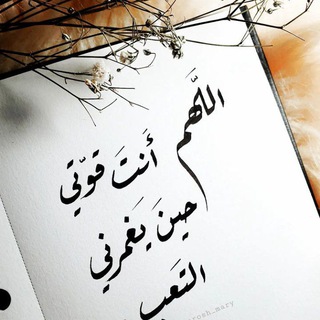 اللَّهم
أنتَ قوّتي
حينَ يَغمرني
التعَب